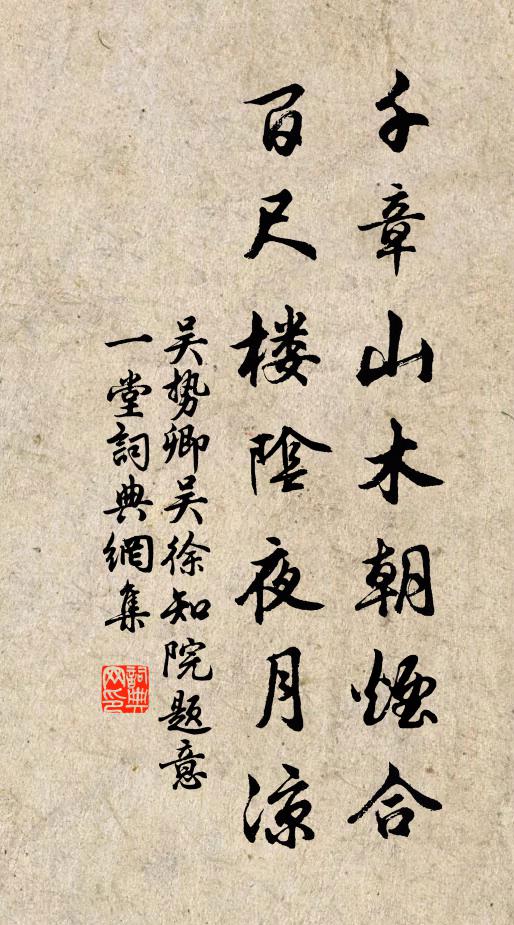 千章山木朝煙合
百尺楼陰夜月凉
吴势卿吴徐知院题意
一堂詞典網集
詞典
网印